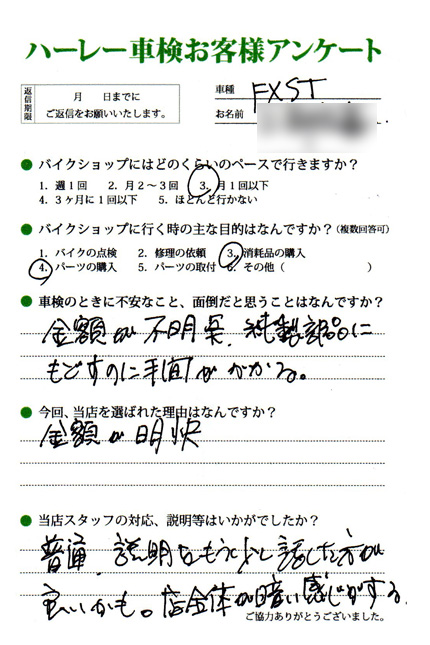 ハーレー車検お客様アンケート
返信期限
月　　日までに
ご返信をお願いいたします。
車種 FXST
お名前
● バイクショップにはどのくらいのペースで行きますか？
1. 週1回　2. 月2〜3回　3. 月1回以下
4. 3ヶ月に1回以下　5. ほとんど行かない
● バイクショップに行く時の主な目的はなんですか？（複数回答可）
1. バイクの点検　2. 修理の依頼　3. 消耗品の購入
4. パーツの購入　5. パーツの取付　6. その他（　　　　　　）
● 車検のときに不安なこと、面倒だと思うことはなんですか？
金額が不明奌、純製部品に
もどすのに手間がかかる。
● 今回、当店を選ばれた理由はなんですか？
金額が明快
● 当店スタッフの対応、説明等はいかがでしたか？
普通、説明をもう少し話した方が
良いかも。店全体が暗い感じがする。
ご協力ありがとうございました。